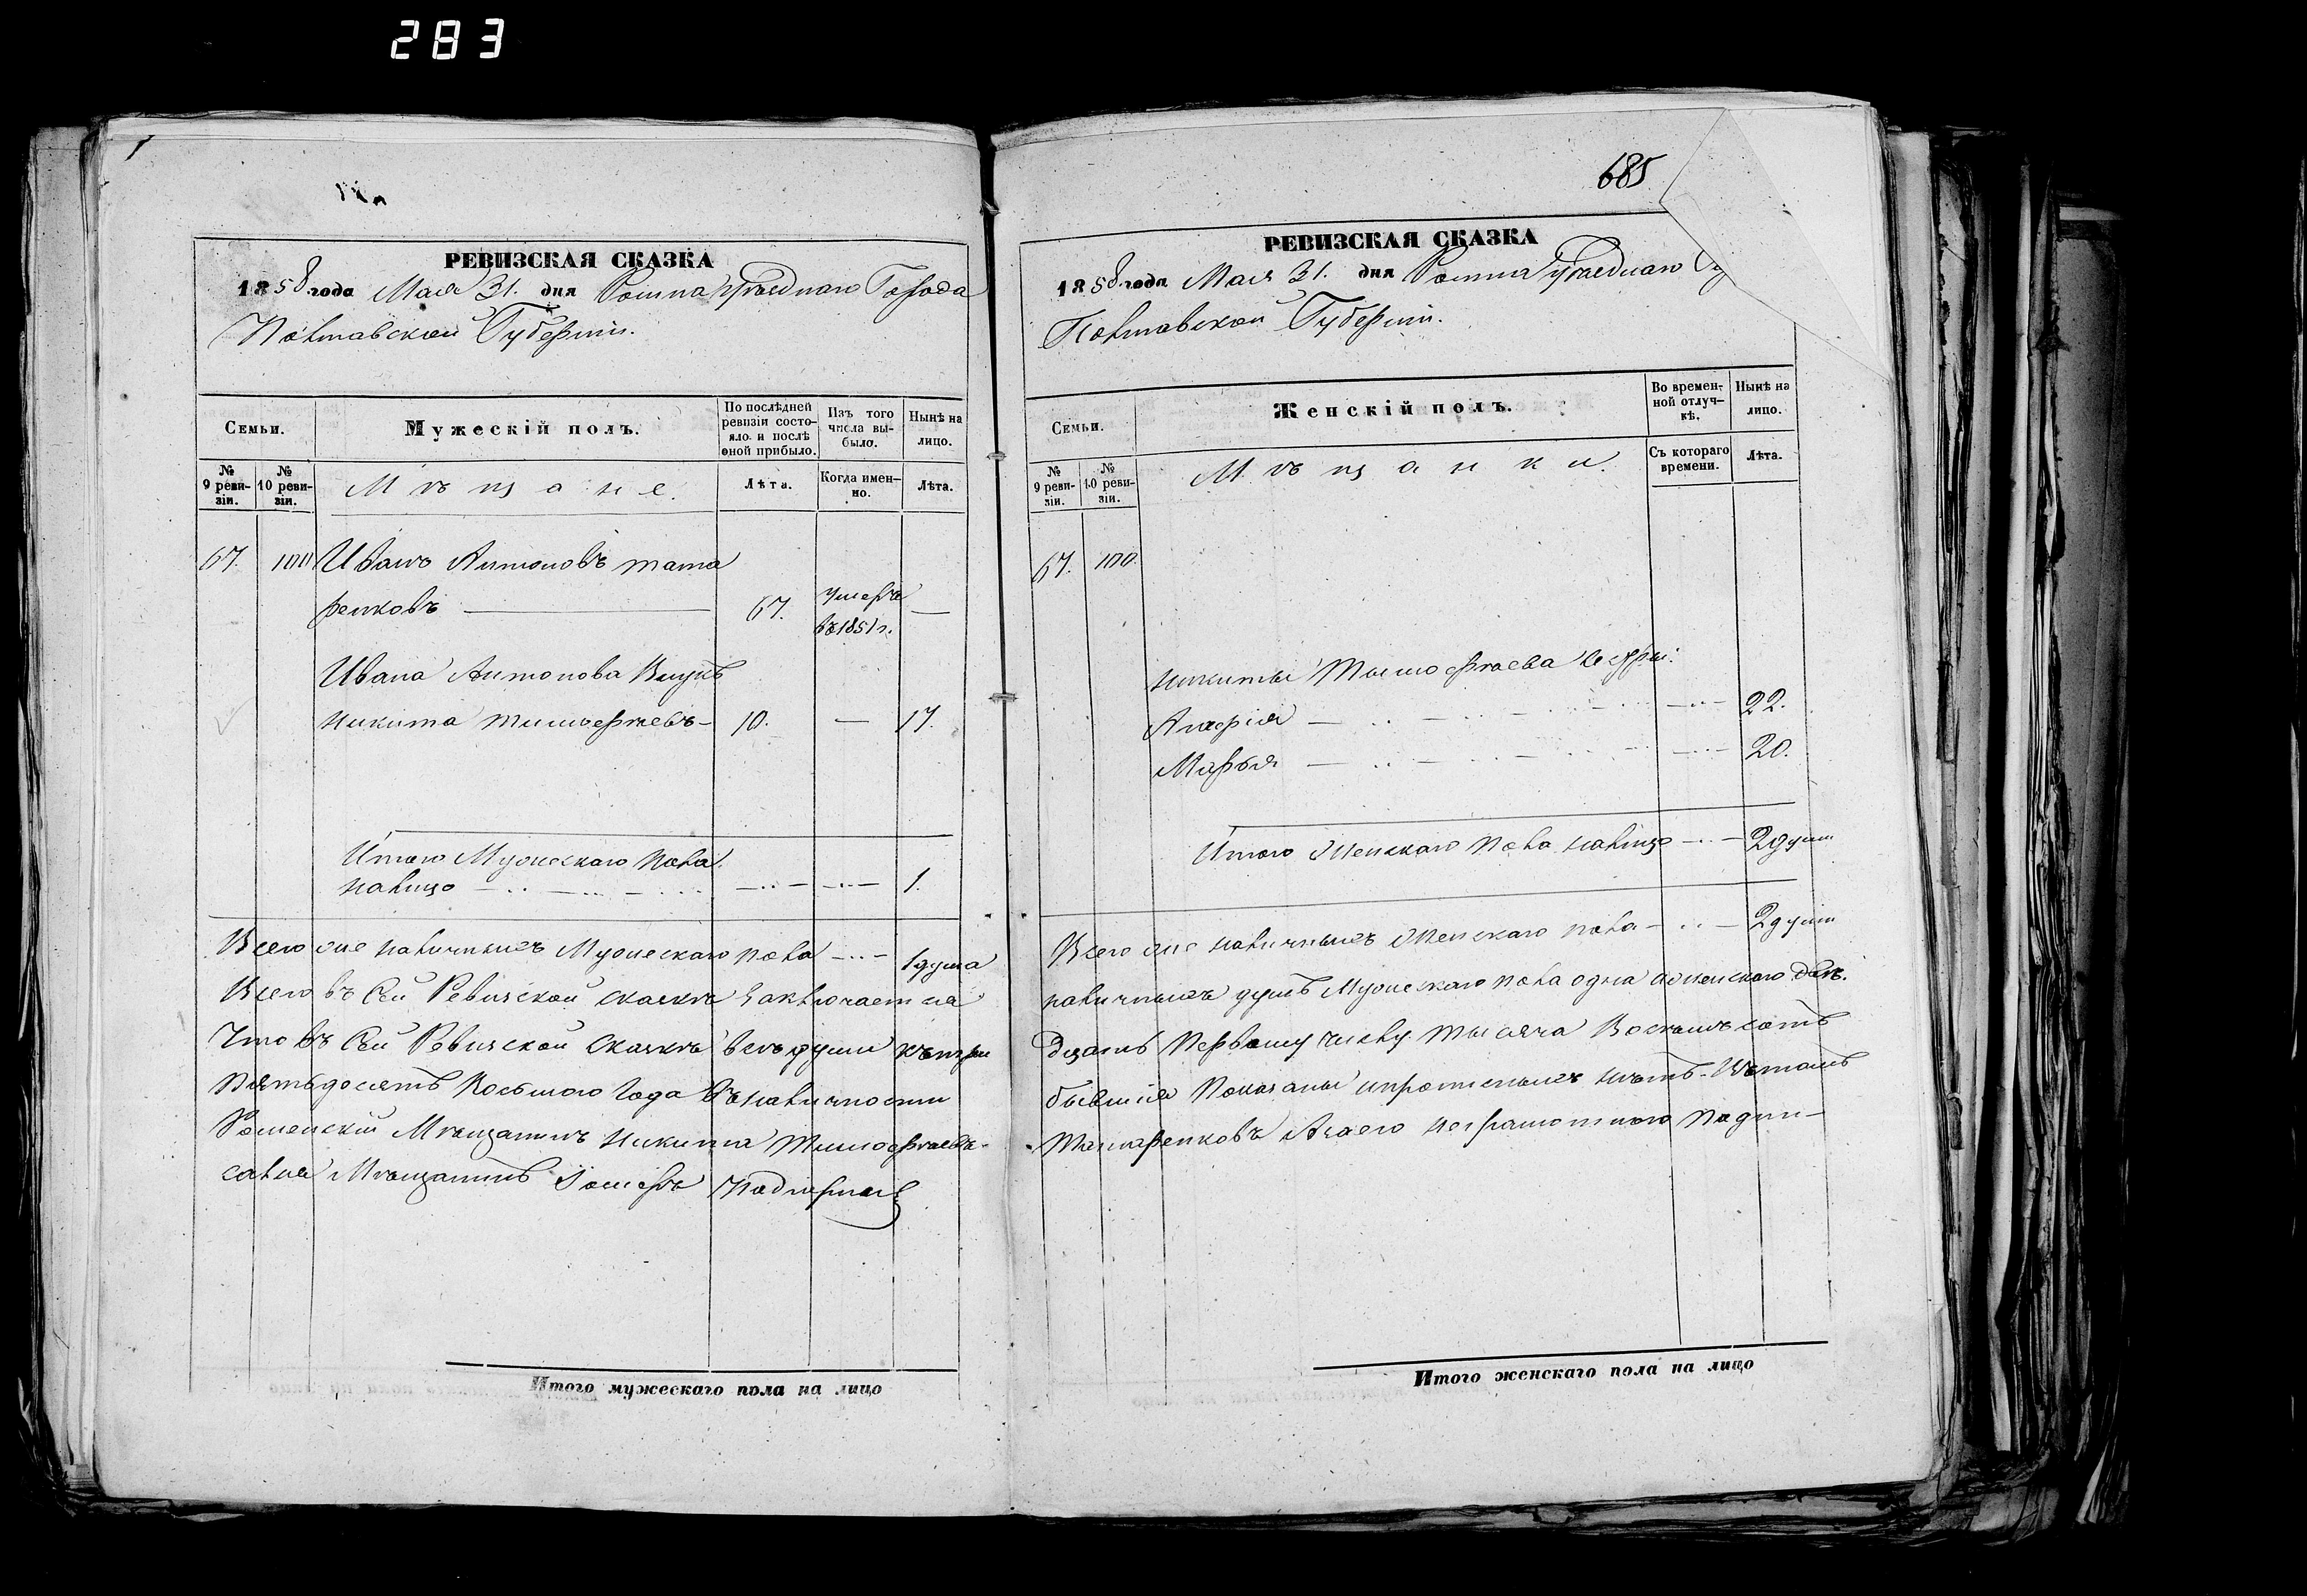 283
РЕВИЗСКАЯ СКАЗКА
1858 года Мая 31. дня Ромна уѣзднаго Города
Полтавской Губерніи.
Семьи.
Мужескій полъ.
По послѣдней ревизіи состояло и послѣ оной прибыло.
Изъ того числа выбыло.
Нынѣ на лицо.
№ 9 ревизіи.
№ 10 ревизіи.
Мѣщане.
Лѣта.
Когда именно.
Лѣта.
67. 100 Иванъ Антоновъ Тата
ренковъ 67. умеръ въ 1851 г. —
Ивана Антонова Внукъ
Никита Тимофѣевъ - 10. — 17.
Итого Мужескаго пола
налицо 1.
Всего же наличныхъ Мужескаго пола 1 душа
Всего въ Сей Ревизской сказкѣ заключается
Что въ Сей Ревизской Сказкѣ всѣ души
Пятьдесятъ Восьмого Года въ наличности
Роменскій Мѣщанинъ Никита Тимофѣевъ
салъ Мѣщанинъ
Итого мужескаго пола на лицо
685
РЕВИЗСКАЯ СКАЗКА
1858 года Мая 31. дня Ромна уѣзднаго
Полтавской Губерніи.
Семьи.
Женскій полъ.
Во временной отлучкѣ.
Нынѣ на лицо.
№ 9 ревизіи.
№ 10 ревизіи.
Мѣщанки.
Съ котораго времени.
Лѣта.
67. 100.
Никиты Тимофѣева сестры:
22.
Марья 20.
Итого Женскаго пола налицо 2 души
Всего же наличныхъ Женскаго пола 2 души
наличныхъ душъ Мужескаго пола одна а женскаго двѣ.
дцать Первому числу Тысяча Восемьсотъ
бывшія Показаны и прописныхъ нѣтъ.
Татаренковъ А за его неграмотного подпи-
Итого женскаго пола на лицо